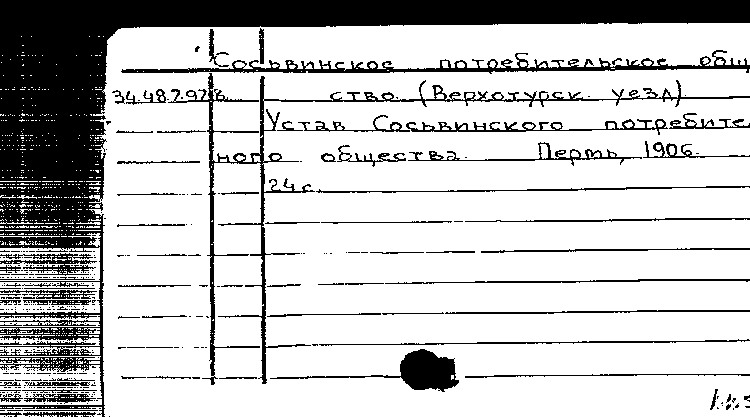 Сосьвинское потребительское общ
34.48.7.97/6 ство (Верхотурск. уезд)
Устав Сосьвинского потребите
ного общества. Пермь, 1906.
24 с.